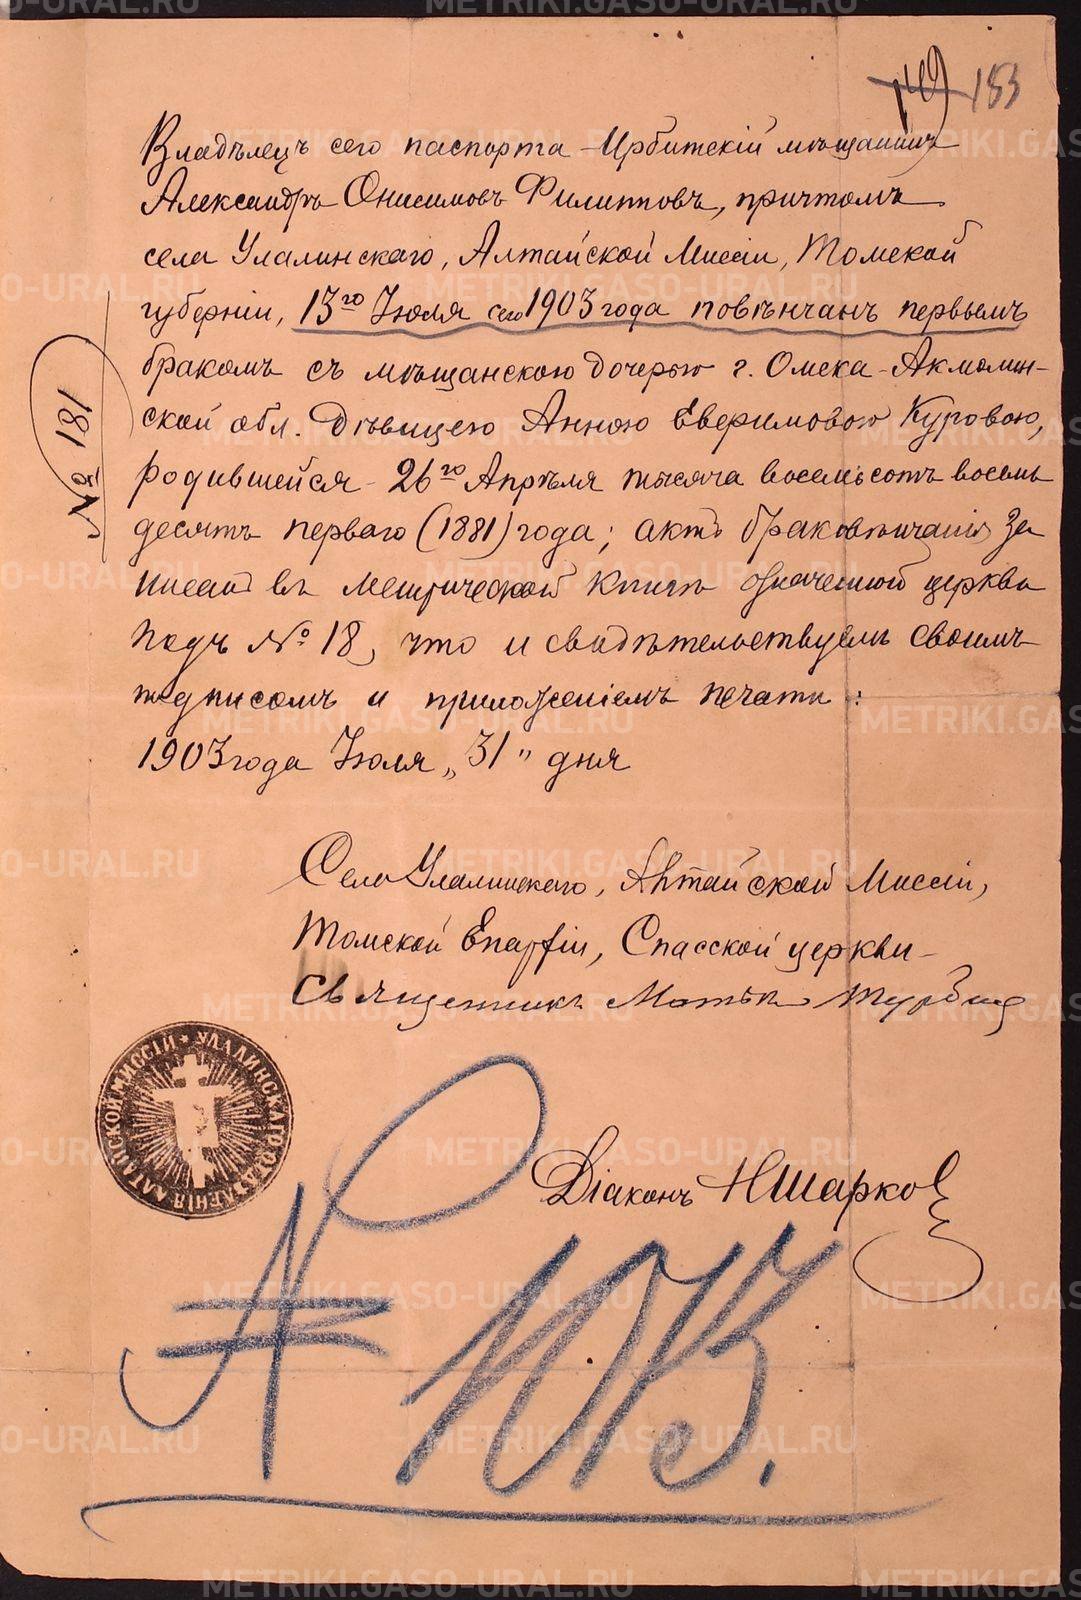 149 153
Владѣлецъ сего паспорта Ирбитскій мѣщанинъ
Александръ Онисимовъ Филипповъ, причтомъ
села Улалинскаго, Алтайской Миссіи, Томской
губерніи, 13го Іюля сего 1903 года повѣнчанъ первымъ
бракомъ съ мѣщанскою дочерью г. Омска Акмолин-
ской обл. Дѣвицею Анною Евфимовою Куровою,
родившейся 26го Апрѣля тысяча восемьсотъ восемь
десятъ перваго (1881) года; актъ браковѣнчанія за
писанъ въ метрической книгѣ означенной церкви
подъ № 18, что и свидѣтельствуемъ своимъ
подписомъ и приложеніемъ печати:
1903 года Іюля „31" дня
№ 181
Село Улалинскаго, Алтайской Миссіи,
Томской Епархіи, Спасской церкви
Священникъ Матѳ
Діаконъ Н Шарков
АЛТАЙСКОЙ МИССІИ * УЛАЛИНСКАГО
№ 1073.
METRIKI.GASO-URAL.RU